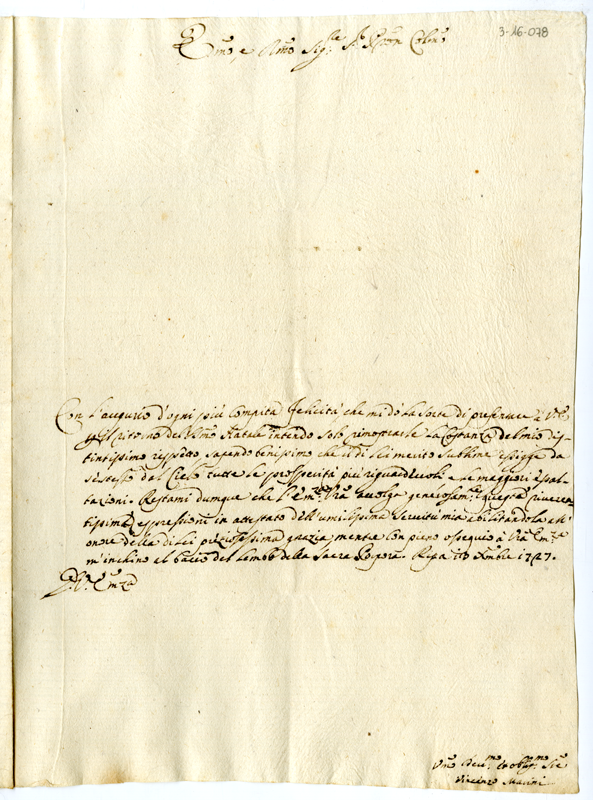 3-16-078
Em̃o, e Rm̃o Sig.re Sig.r Pron Colmo
Con l'augurio d'ogni più Compita Felicità, che mi dò la Sorte di presentare à V. E.
nel ritorno del Smo Natale intendo solo rimostrarle la Costanza del mio dis-
tintissimo rispetto sapendo benissimo che il di Lei merito Sublime esigge da
se stesso dal Cielo tutte le prosperità più riguardevoli e le maggiori esal-
tazioni. Restami dunque che l'Emza Vra accolga generosamte queste riveren-
tissime espressioni in attestato dell'umilissima servitù mia abilitandola all'
onore della di Lei preziosissima grazia mentre con pieno ossequio à Vra Emza
m'inchino al bacio del Lembo della Sacra Porpora. Ripa 13 Xmbre 1727.
Di V. Emza
Vmo Devmo ed Obblmo Sre
Vincenzo Marini